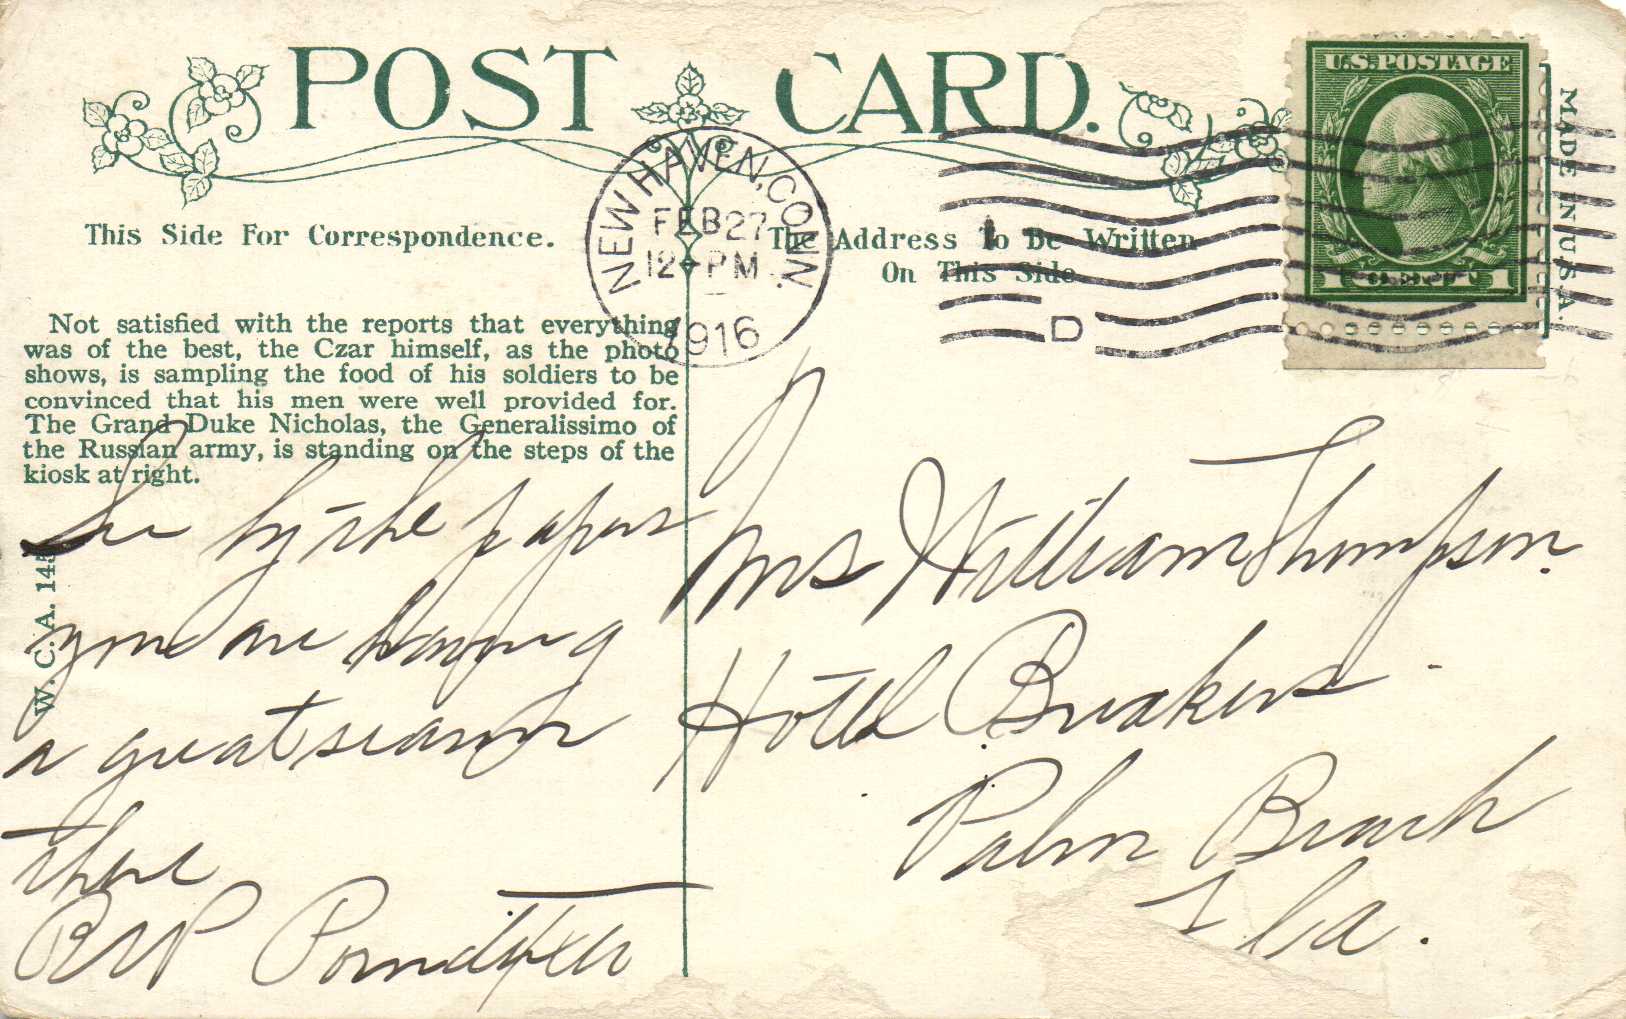 POST CARD.
This Side For Correspondence.
The Address To Be Written
On This Side
NEW HAVEN, CONN.
FEB 27
12 PM
1916
D
U.S. POSTAGE
1 1
MADE IN U.S.A.
Not satisfied with the reports that everything
was of the best, the Czar himself, as the photo
shows, is sampling the food of his soldiers to be
convinced that his men were well provided for.
The Grand Duke Nicholas, the Generalissimo of
the Russian army, is standing on the steps of the
kiosk at right.
W. C. A. 145
See by the papers
you are having
a great season
there
Mrs William Thompson.
Hotel Breakers
Palm Beach
Fla.